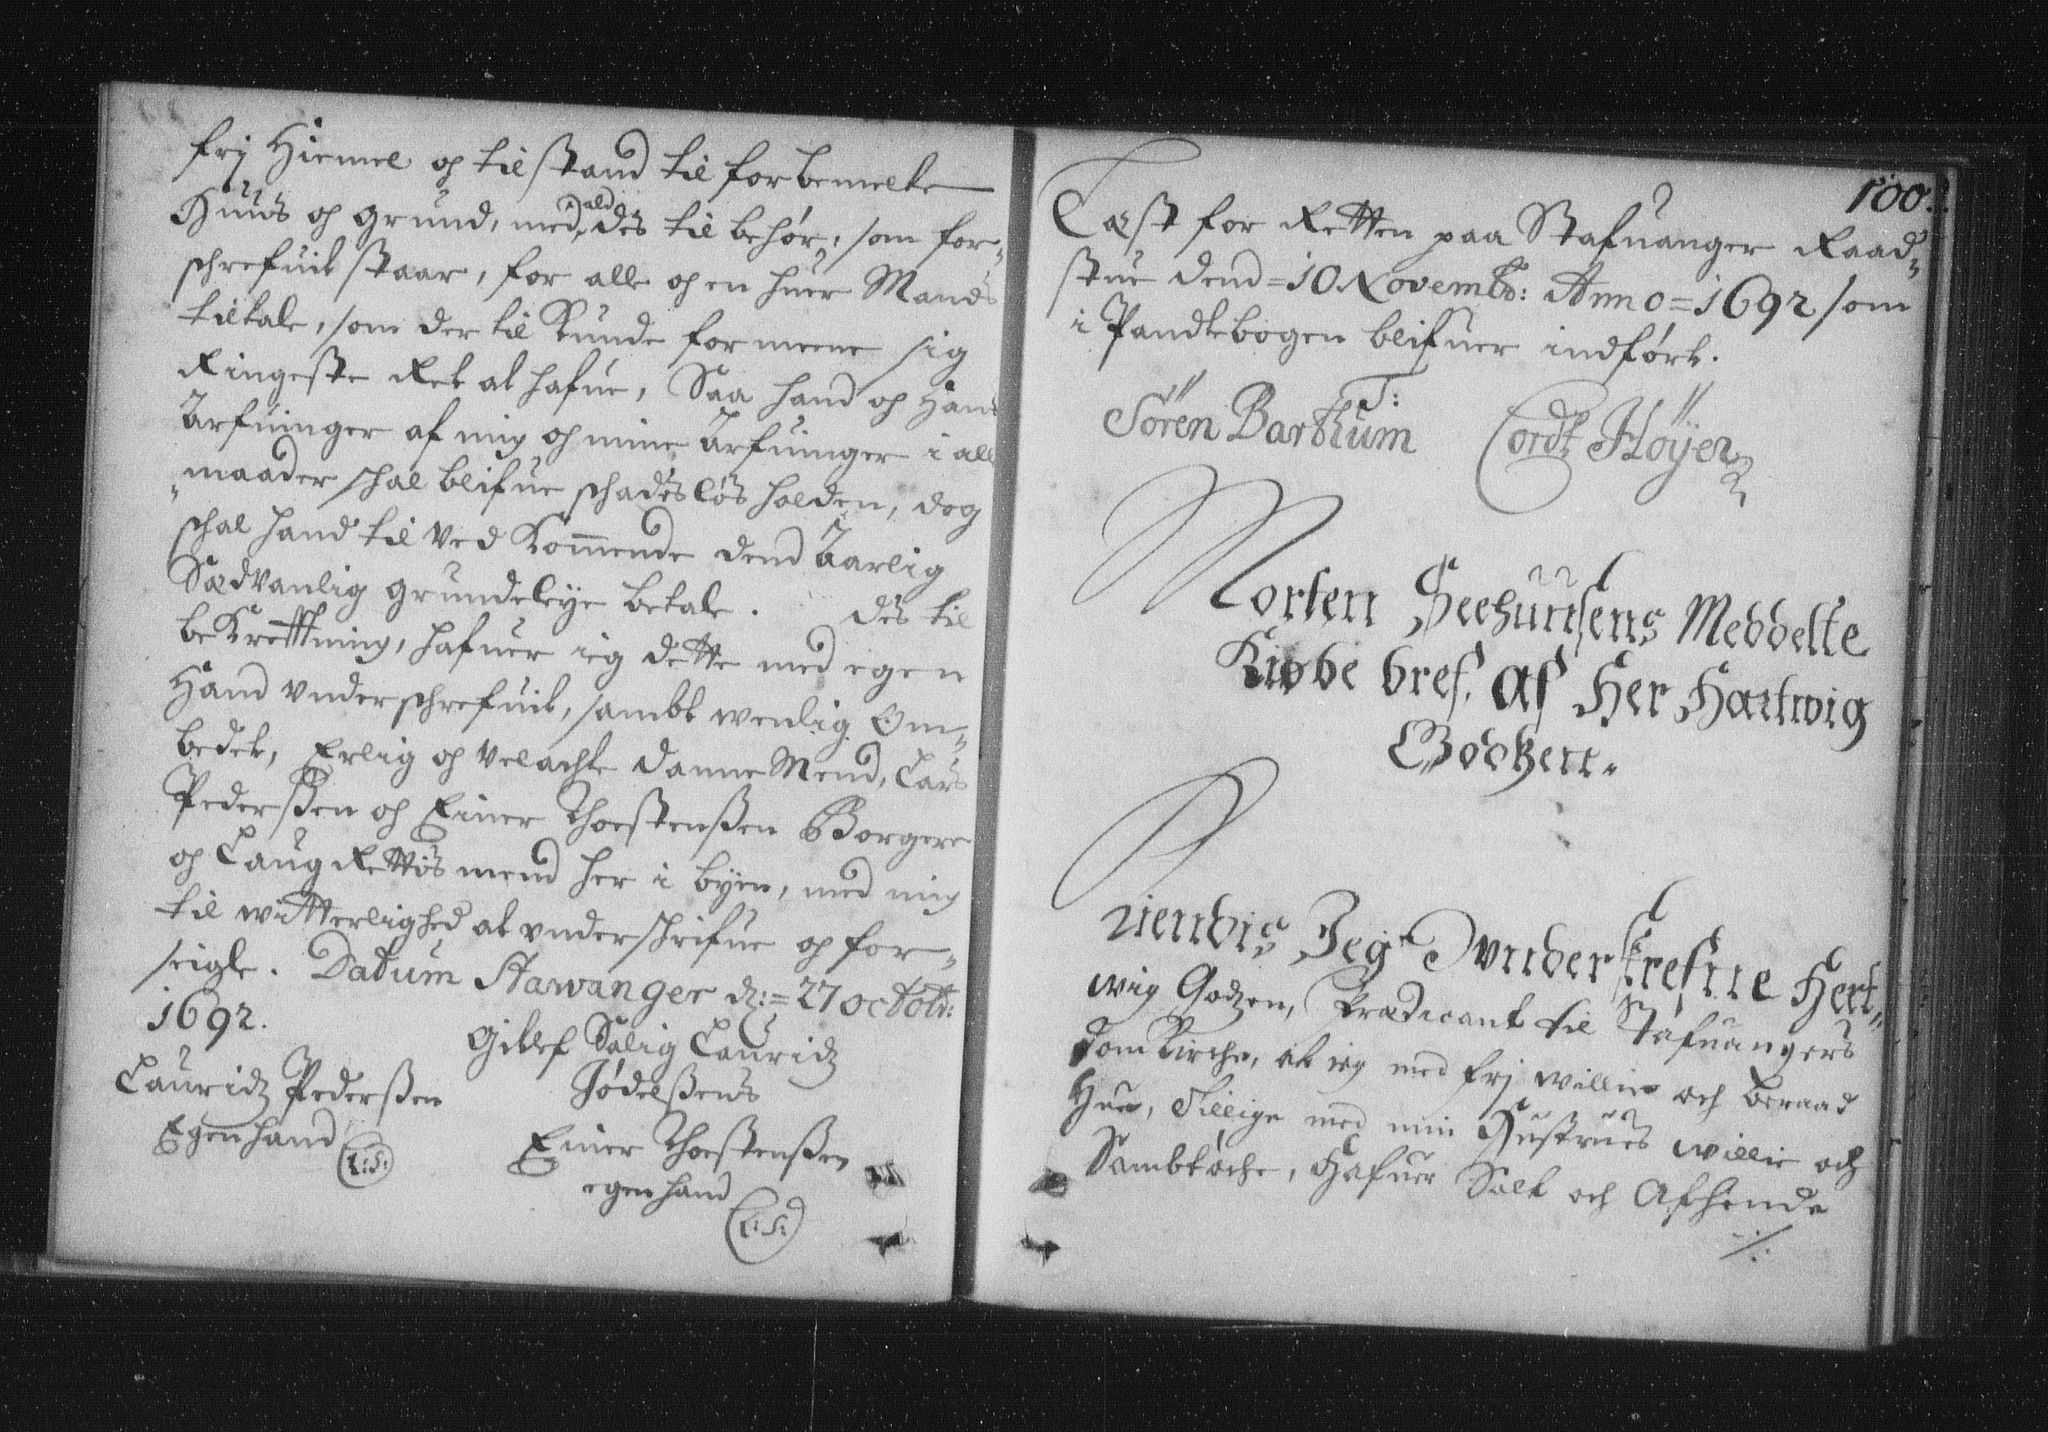 frj Hiemel og tilstand til forbemelte
Huus og grund, med ald dès til behør, som for-
schrefuit staar, for alle og en huer Mands
tiltale, som der til Kunde formeene sig
Ringeste Ret at hafue, Saa hand og Hans
Arfuinger af mig og mine Arfuinger i all
maader schal blifue schadesløs holden, dog
schal hand til Ved Kommende dend Aarlig
Sædvanlig grundeleye betale. Dès til
beKrefftning, hafuer ieg dette med egen
Haand vnderschrefuit, sambt wenlig Om-
bedet, Erlig og Velachte Danne Mend, Lars
Pederßen og Einer Thorstenßen Borgere
og Laug Rettis mend her i byen, med mig
til witterlighed at vnderschrifue og for-
seigle. Datum Stawanger d: = 27 octobr:
1692.
Gitlef Salig Lauridz
Jødelßens
Lauridz Pederßen
Egen hand L:S:
Einer Thorstenßen
egen hand L:S:
100.
Læst for Retten paa Stafuanger Raad-
stue dend = 10 Novembr: Anno = 1692 som
i Pandtebogen blifuer indført.
Søren Barthum T: Cordt Høyer
Morten Seehuusens Meddelte
Kiøbe bref. af Her Hartwig
Godtzen.
Kiendis Jeg vnderskrefne Hert-
wig Godzen, Prædicant til Stafuangers
dom Kirche, at ieg med frj willie och beraad
Hue, Tillige med min Hustrues willie och
Sambtøche, Hafuer Solt och Afhende
./.